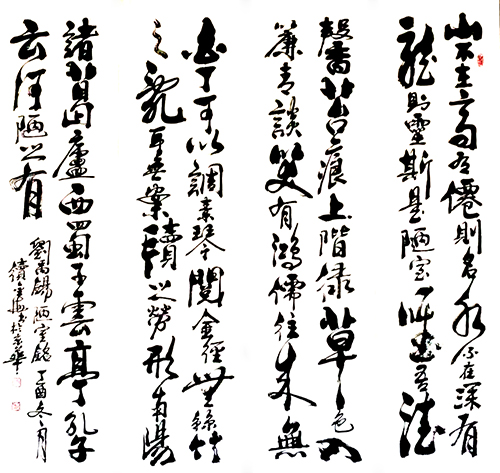 山不在高有僊則名水不在深有
龍則靈斯是陋室惟吾德
馨苔痕上階綠草色入
簾青談笑有鴻儒往來無
白丁可以調素琴閱金經無絲竹
之亂耳無案牘之勞形南陽
諸葛廬西蜀子雲亭孔子
云何陋之有
劉禹錫陋室銘丁酉冬月
於京華